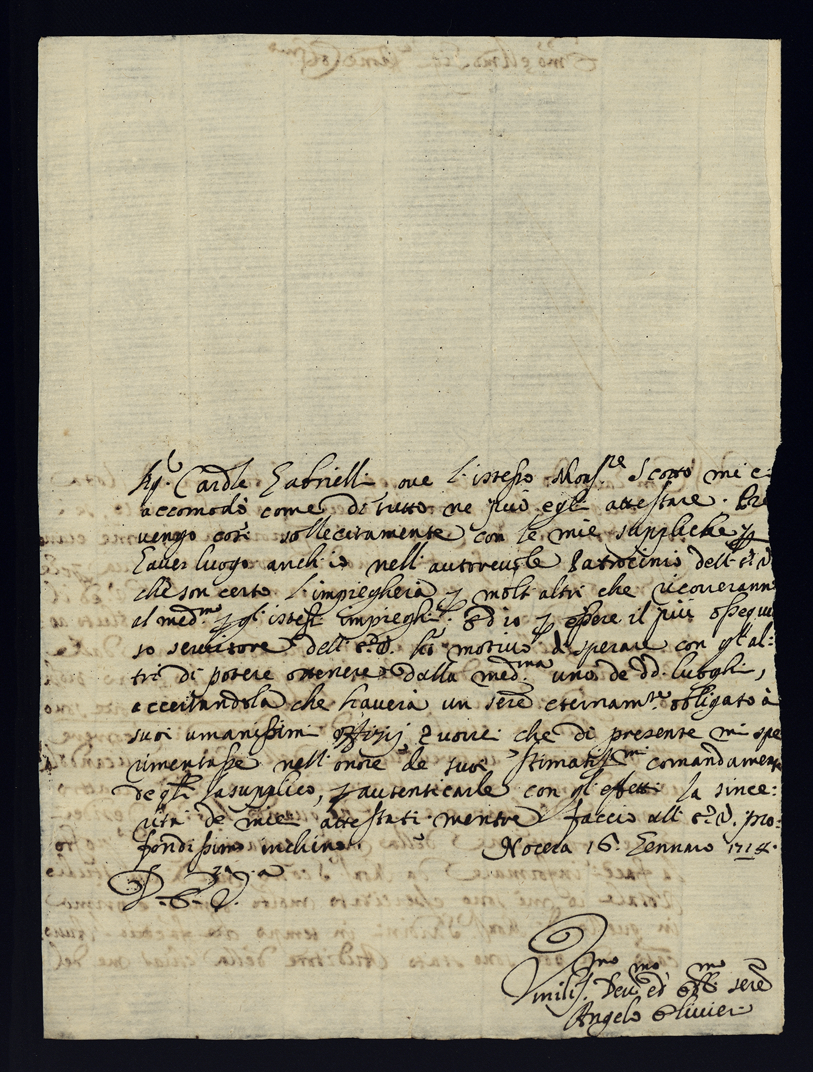 Sig.r Cardle Gabrielli ove l'istesso Mons.re Scotto mi c
accomodò come di tutto ne può egli attestare. Pre
vengo così sollecitamente con le mie suppliche p
haver luogo anch'io nell'autorevole Patrocinio dell'E.V.
che son certo l'impiegherà p molti altri che ricoreranno
al med.mo p gl'istessi impieghi. Ed io p essere il più ossequio
so servitore dell'E.V. hò motivo di sperare con gl'al-
tri di potere ottenere dalla med.ma uno de dd. luoghi,
accertandola che haverà un serre eternam.te obligato a
suoi umanissimi offizij e vorrei che di presente mi spe
rimentasse nell'onore de suoi stimatiss.mi comandamenti
de quali la supplico, p autenticarle con gl'effetti la since:
rità de miei attestati mentre faccio all'E.V. pro-
fondissimo inchino. Nocera 16 Gennaro 1714.
D. E. V.
Umilis.mo Dev.mo ed Obb.mo serre
Angelo Olivieri